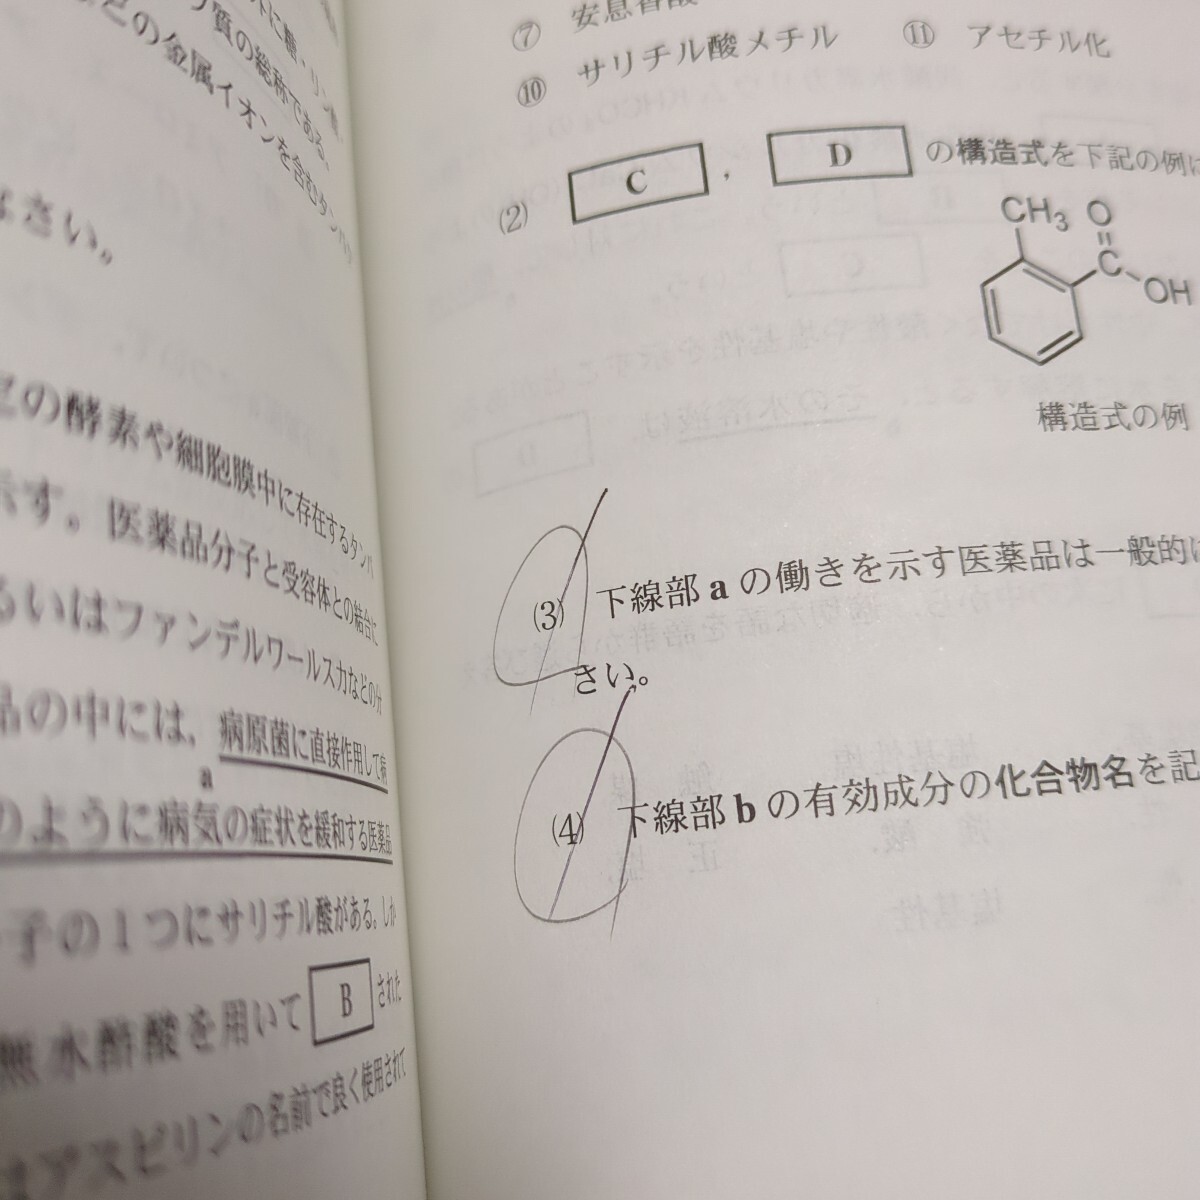 質の総称である。
どの金属イオンを含むタンパク
なさい。
の酵素や細胞膜中に存在するタンパ
示す。医薬品分子と受容体との結合に
るいはファンデルワールス力などの分
品の中には、病原菌に直接作用して病
a
のように病気の症状を緩和する医薬品
子の1つにサリチル酸がある。しか
無水酢酸を用いて B された
はアスピリンの名前で良く使用されて
⑦ 安息香酸
⑩ サリチル酸メチル ⑪ アセチル化
(2) C , D の構造式を下記の例に
CH3 O
C
OH
構造式の例
(3) 下線部 a の働きを示す医薬品は一般的に
さい。
(4) 下線部 b の有効成分の化合物名を記